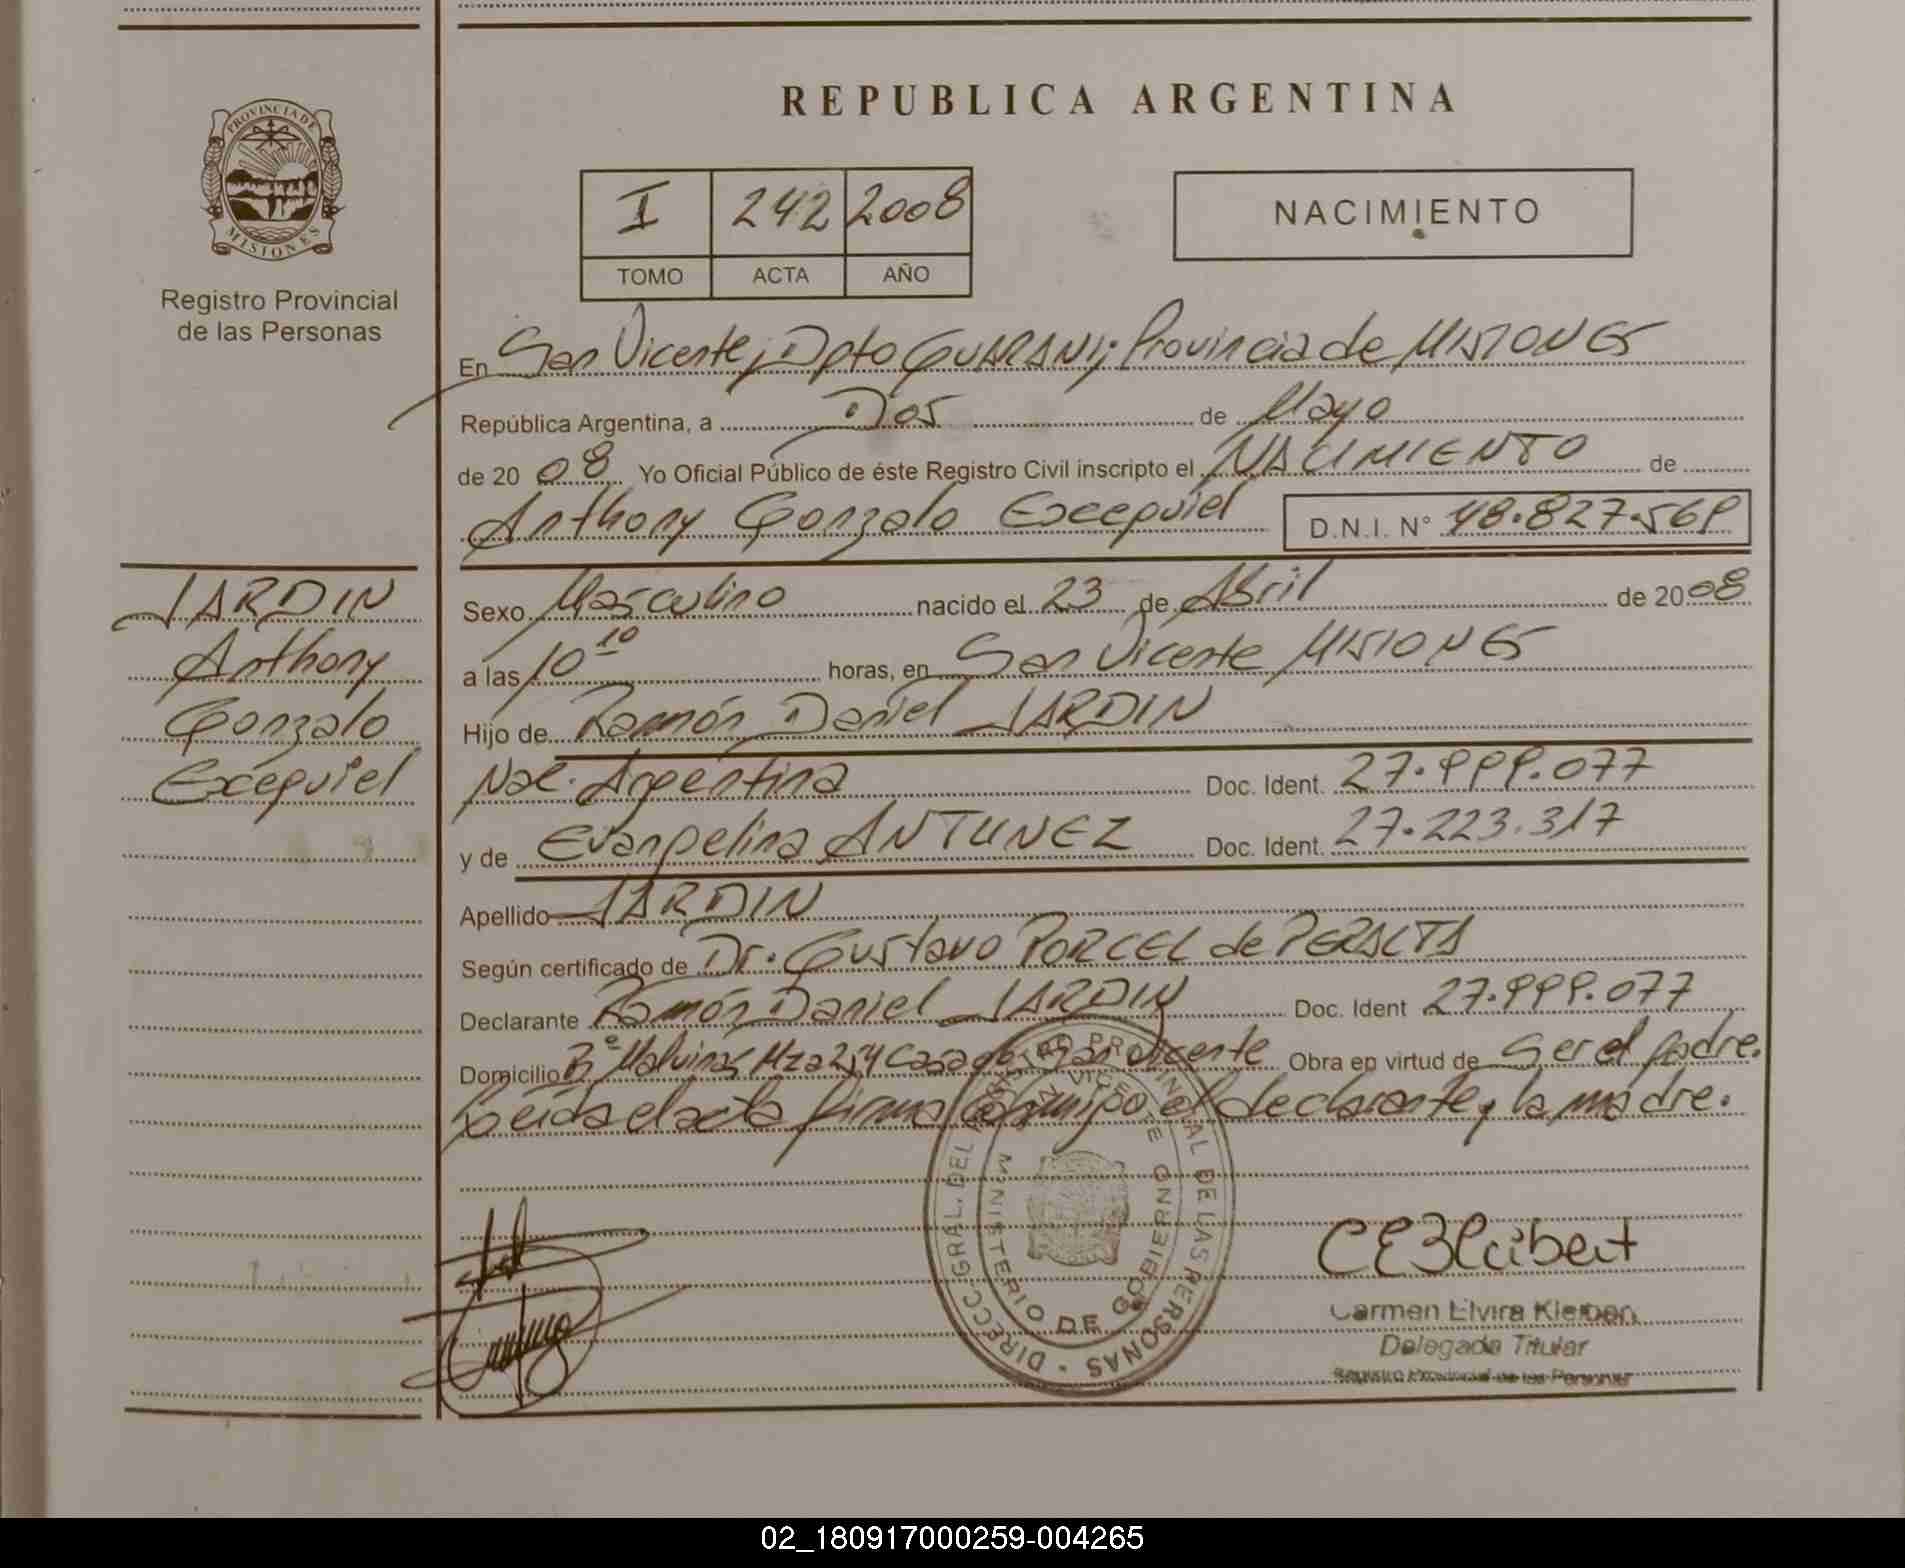 PROVINCIA DE
MISIONES
Registro Provincial
de las Personas
JARDIN
Anthony
Gonzalo
Exequiel
REPUBLICA ARGENTINA
I 242 2008
TOMO ACTA AÑO
NACIMIENTO
En San Vicente, Dpto GUARANI; Provincia de MISIONES
República Argentina, a Dos de Mayo
de 2008 Yo Oficial Público de éste Registro Civil inscripto el NACIMIENTO de
Anthony Gonzalo Exequiel D.N.I. N° 48.827.569
Sexo Masculino nacido el 23 de Abril de 2008
a las 10 10 horas, en San Vicente MISIONES
Hijo de Ramón Daniel JARDIN
Nac. Argentina Doc. Ident. 27.999.077
y de Evangelina ANTUNEZ Doc. Ident. 27.223.317
Apellido JARDIN
Según certificado de Dr. Gustavo PORCEL de PERALTA
Declarante Ramón Daniel JARDIN Doc. Ident 27.999.077
Domicilio B° Malvinas Mza 254 Casa San Vicente Obra en virtud de Ser el padre.
Leida el acta firma conmigo el declarante y la madre.
DIRECC. GRAL. DEL REGISTRO PROVINCIAL DE LAS PERSONAS
SAN VICENTE
MINISTERIO DE GOBIERNO
Carmen Elvira Kleiben
Delegada Titular
Registro Provincial de las Personas
02_180917000259-004265